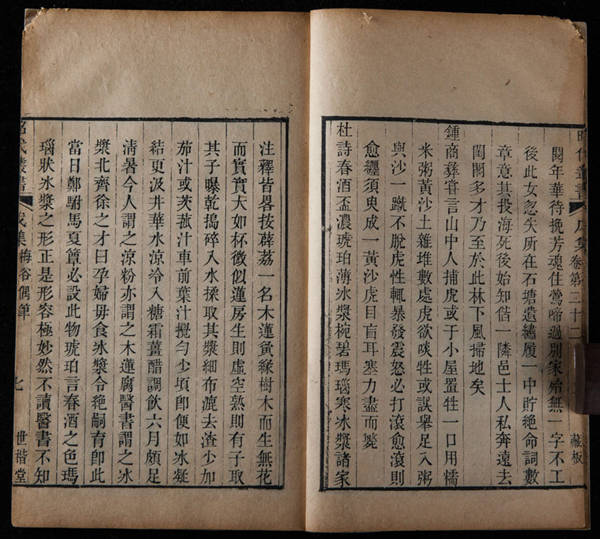 昭代叢書
戊集卷第二十二
藏板
閱年華待挽芳魂住鶯啼過別家殆無一字不工
後此女忽失所在石塘遺繡履一中貯絶命詞數
章意其投海死後始知偕一隣邑士人私奔遠去
閨閣多才乃至於此林下風掃地矣
鍾商彝嘗言山中人捕虎或于小屋置牲一口用糯
米粥黃沙土雜堆數處虎欲啖牲或誤舉足入粥
與沙一蹴不脫虎性輒暴發震怒必打滾愈滾則
愈纏須臾成一黃沙虎目盲耳塞力盡而斃
杜詩春酒盃濃琥珀薄冰漿椀碧瑪瑙寒冰漿諸家
注釋皆畧按薜荔一名木蓮夤緣樹木而生無花
而實實大如杯微似蓮房生則虛空熟則有子取
其子曝乾搗碎入水揉取其漿細布漉去渣少加
茄汁或茨菰汁車前葉汁攪勻少頃卽便如冰凝
結更汲井華水涼冷入糖霜薑醋調飲六月頗足
清暑今人謂之涼粉亦謂之木蓮腐醫書謂之冰
漿北齊徐之才曰孕婦毋食冰漿令絶嗣育卽此
當日鄭駙馬夏簟必設此物琥珀言春酒之色瑪
瑙狀冰漿之形正是形容極妙然不讀醫書不知
昭代叢書
戊集梅谷偶筆
七
世楷堂